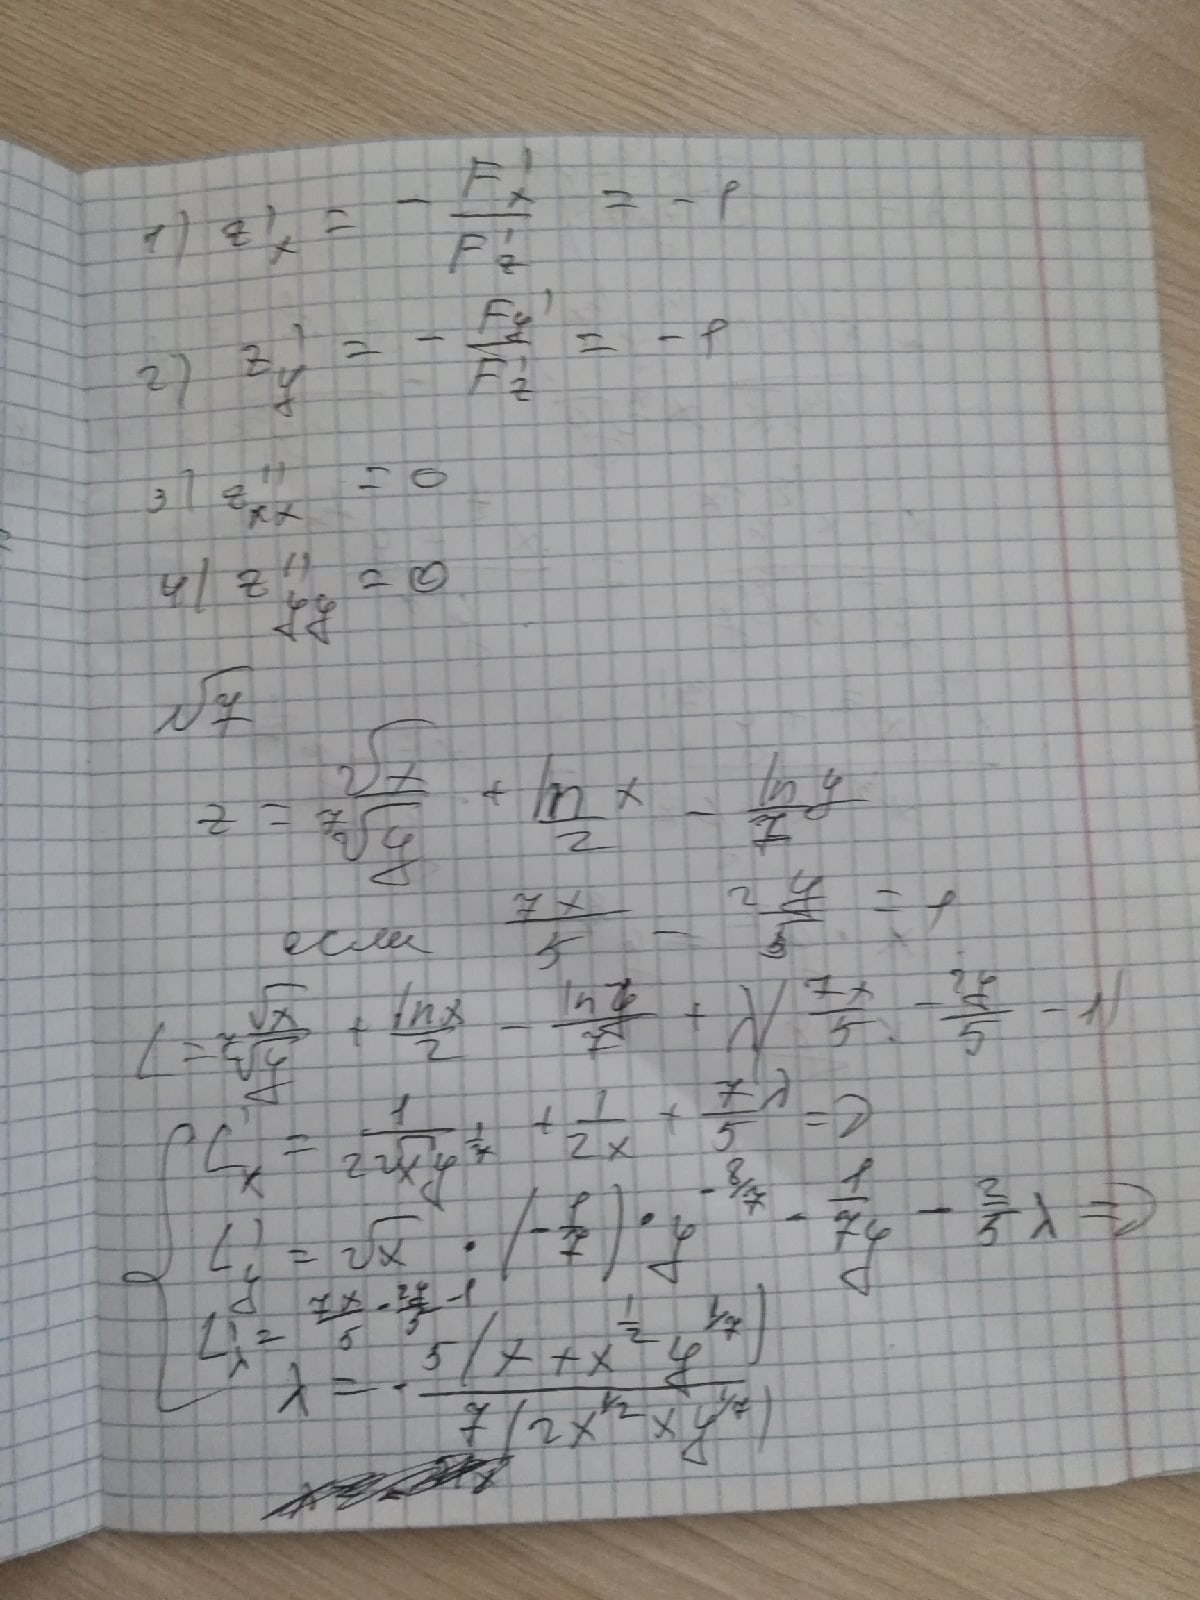 1) z'x = - F'x / F'z = - 1
2) z'y = - Fy' / F'z = - 1
3) z''xx = 0
4) z''yy = 0
√7
z = √x / ⁷√y + ln x / 2 - ln y / 7
если 7x / 5 - 2y / 5 = 1
L = √x / ⁷√y + ln x / 2 - ln y / 7 + λ( 7x / 5 - 2y / 5 - 1)
L'x = 1 / 2√x y^1/7 + 1 / 2x + 7 / 5 λ = 0
L'y = √x · (- 1 / 7) · y^-8/7 - 1 / 7y - 2 / 5 λ = 0
L'λ = 7x / 5 - 2y / 5 - 1
λ = - 5(x + x^1/2 y^1/7) / 7(2x^1/2 x y^1/7)